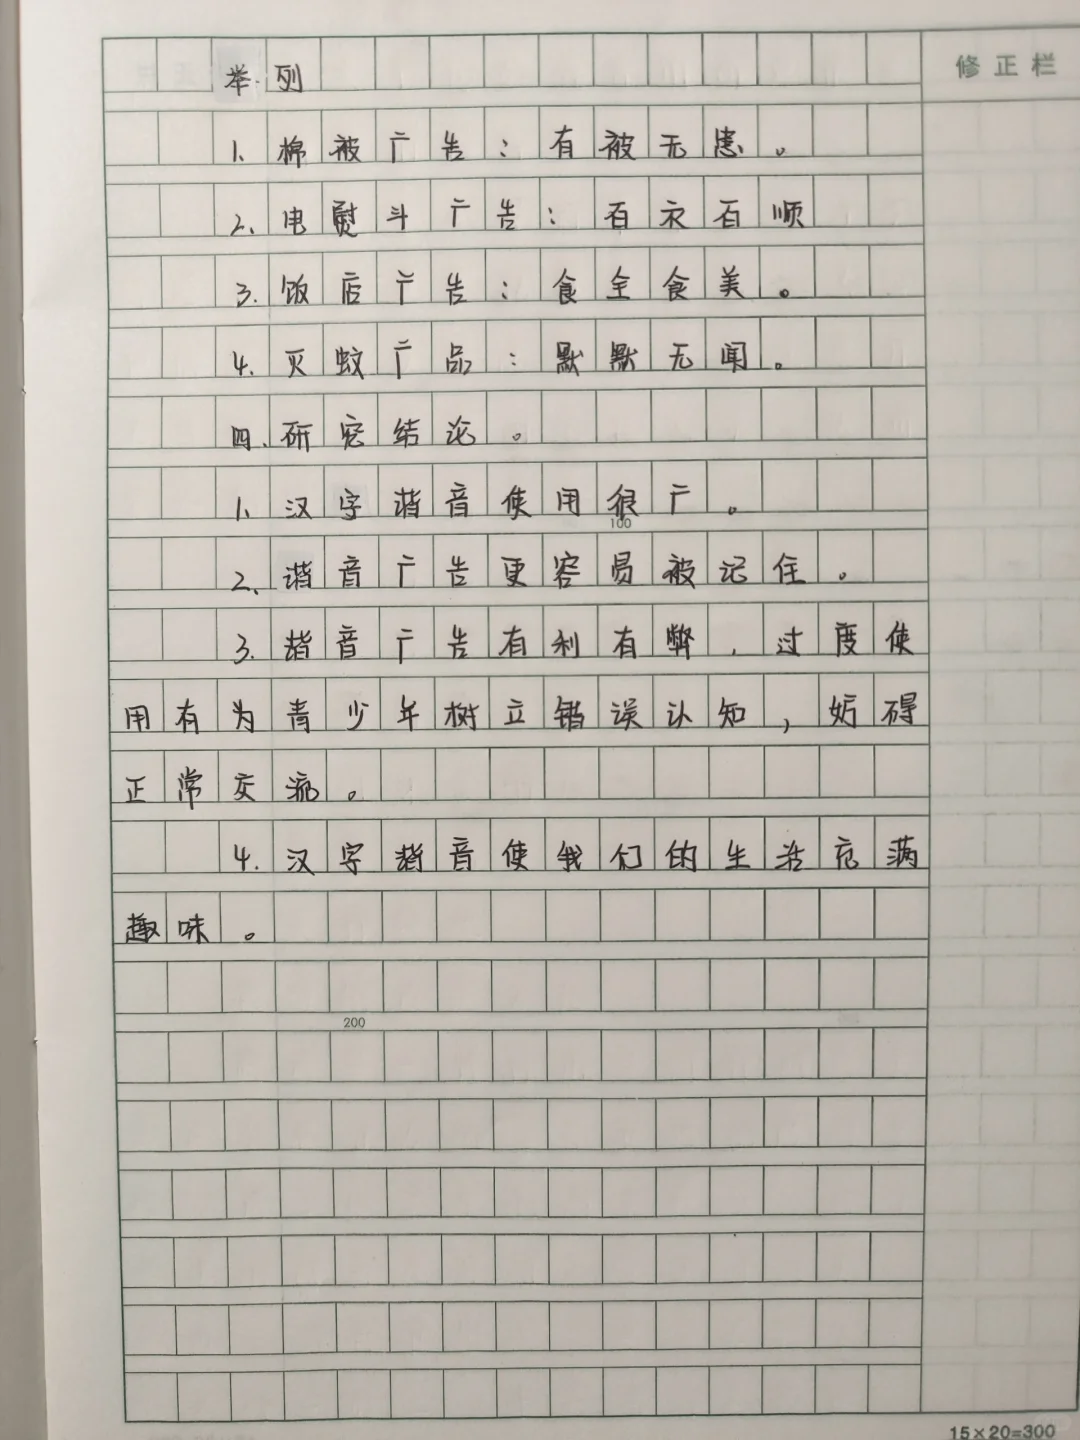 修正栏
举列
1. 棉被广告：有被无患。
2. 电熨斗广告：百衣百顺
3. 饭店广告：食全食美。
4. 灭蚊广品：默默无闻。
四.研究结论。
1. 汉字谐音使用很广。
100
2. 谐音广告更容易被记住。
3. 谐音广告有利有弊，过度使
用有为青少年树立错误认知，妨碍
正常交流。
4. 汉字谐音使我们的生活充满
趣味。
200
15×20=300